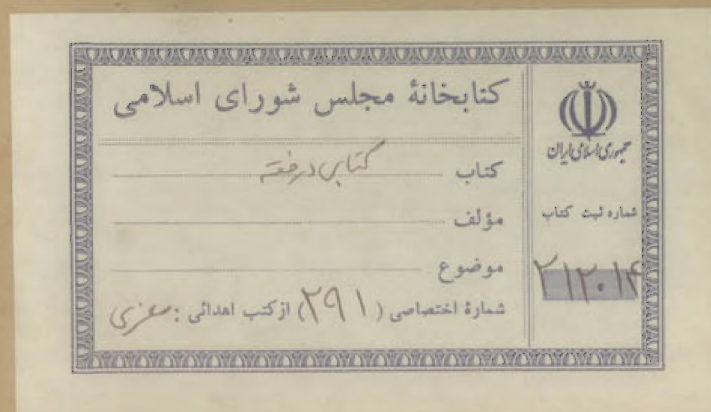 کتابخانهٔ مجلس شورای اسلامی
کتاب کتابی در فقه
مؤلف
موضوع
شمارهٔ اختصاصی (۲۹۱) از کتب اهدائی :
جمهوری اسلامی ایران
شماره ثبت کتاب
۲۱۲۰۱۴